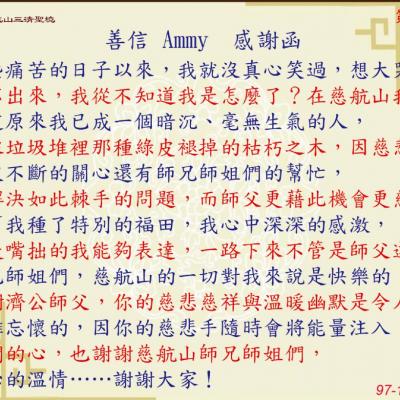 航山三清聖境
善信 Ammy 感謝函
痛苦的日子以來，我就沒真心笑過，想大
出來，我從不知道我是怎麼了？在慈航山
原來我已成一個暗沉、毫無生氣的人，
垃圾堆裡那種綠皮褪掉的枯朽之木，因慈
不斷的關心還有師兄師姐們的幫忙，
決如此棘手的問題，而師父更藉此機會更
我種了特別的福田，我心中深深的感激，
嘴拙的我能夠表達，一路下來不管是師父
師姐們，慈航山的一切對我來說是快樂的
濟公師父，你的慈悲慈祥與溫暖幽默是令
忘懷的，因你的慈悲手隨時會將能量注入
的心，也謝謝慈航山師兄師姐們，
的溫情……謝謝大家！
97-1